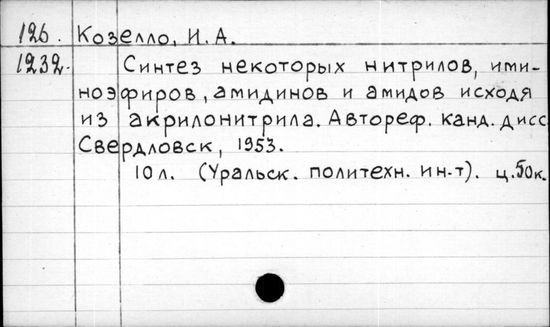 126. Козелло, И. А.
1232. Синтез некоторых нитрилов, ими-
ноэфиров, амидинов и амидов исходя
из акрилонитрила. Автореф. канд. дисс.
Свердловск, 1953.
10 л. (Уральск. политехн. ин-т). ц. 50 к.